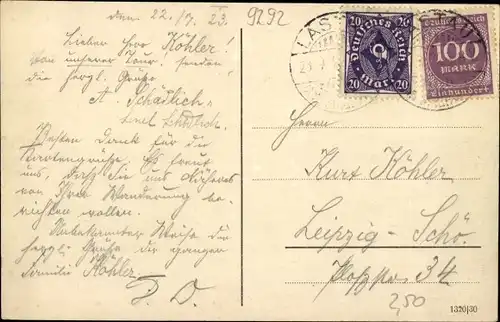 den 22./7. 23.
9292
Lieber Herr Köhler!
Von unserer Tour senden
die herzl. Grüße
A. Schädlich
Besten Dank für die
Kartengrüße. Es freut
uns, daß Sie uns
von Ihrer Wanderung be-
richten wollen.
Unbekannter Weise die
herzl. Grüße der ganzen
Familie Köhler
20
Deutsches Reich
20
20 Mark 20
Deutsches Reich
100
MARK
Einhundert
Herrn
Kurt Köhler,
Leipzig-Schö.
34
2,50
1320/30